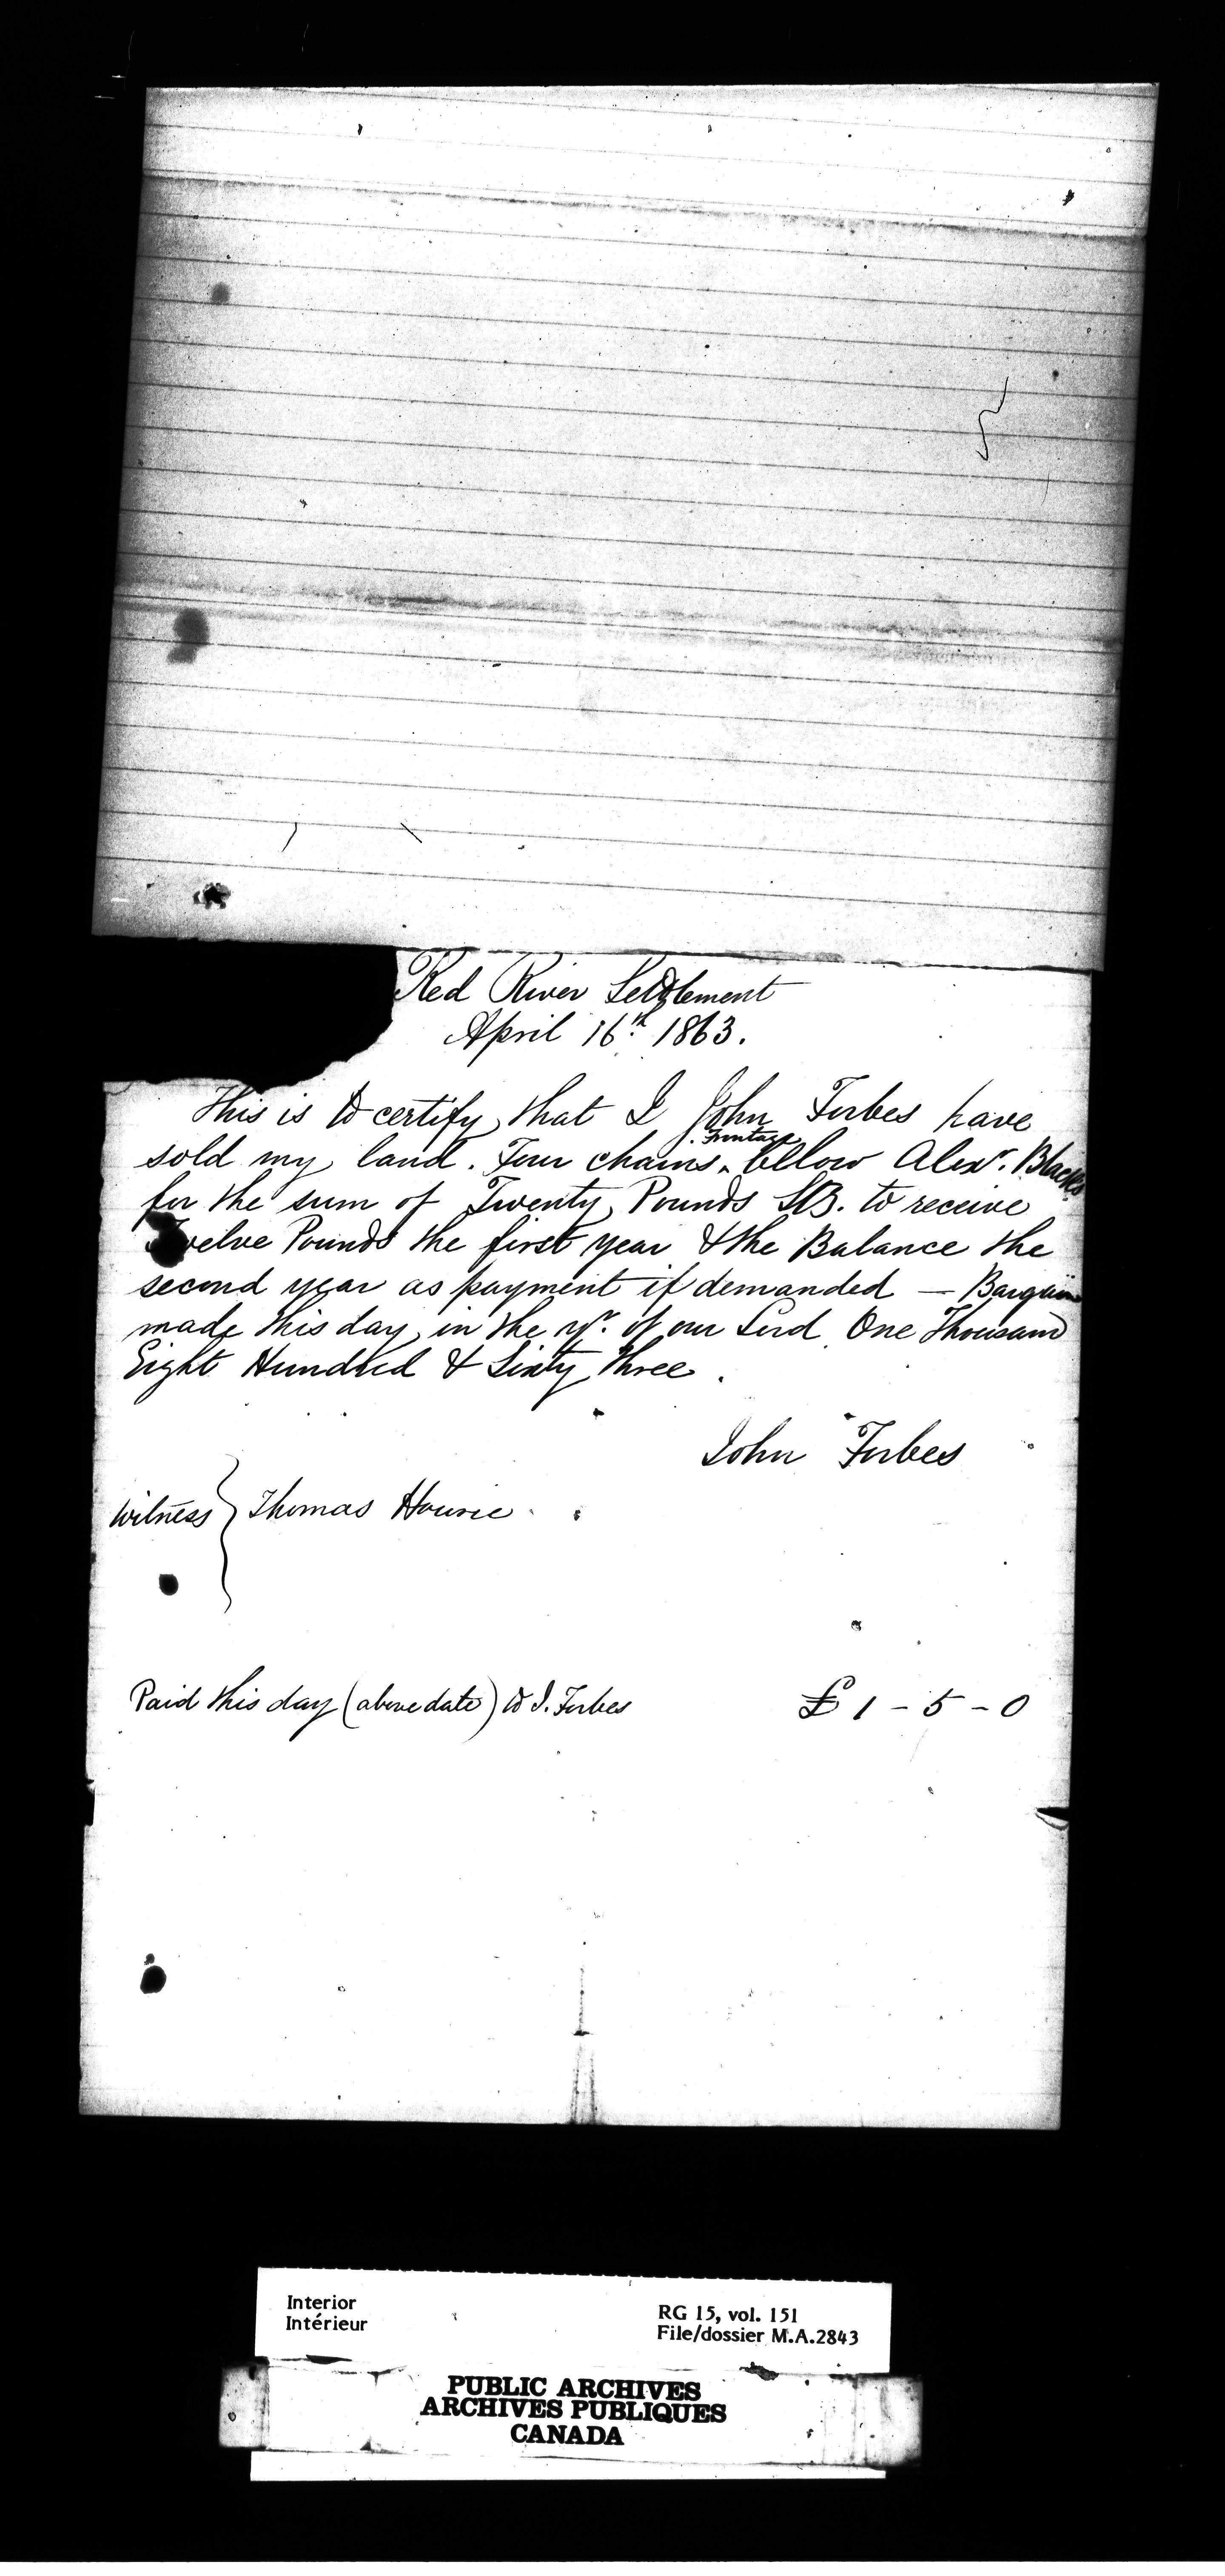 Red River Settlement
April 16th 1863.
This is to certify that I John Forbes have
sold my land. Four chains Frontage bellow Alexr. Blacks
for the sum of Twenty Pounds Stg. to receive
Twelve Pounds the first year & the Balance the
second year as payment if demanded — Bargain
made this day in the yr. of our Lord One Thousand
Eight Hundred & Sixty Three.
John Forbes
Witness } Thomas Hourie
Paid this day (above date) to J. Forbes £ 1 - 5 - 0
Interior
Intérieur
RG 15, vol. 151
File/dossier M.A.2843
PUBLIC ARCHIVES
ARCHIVES PUBLIQUES
CANADA